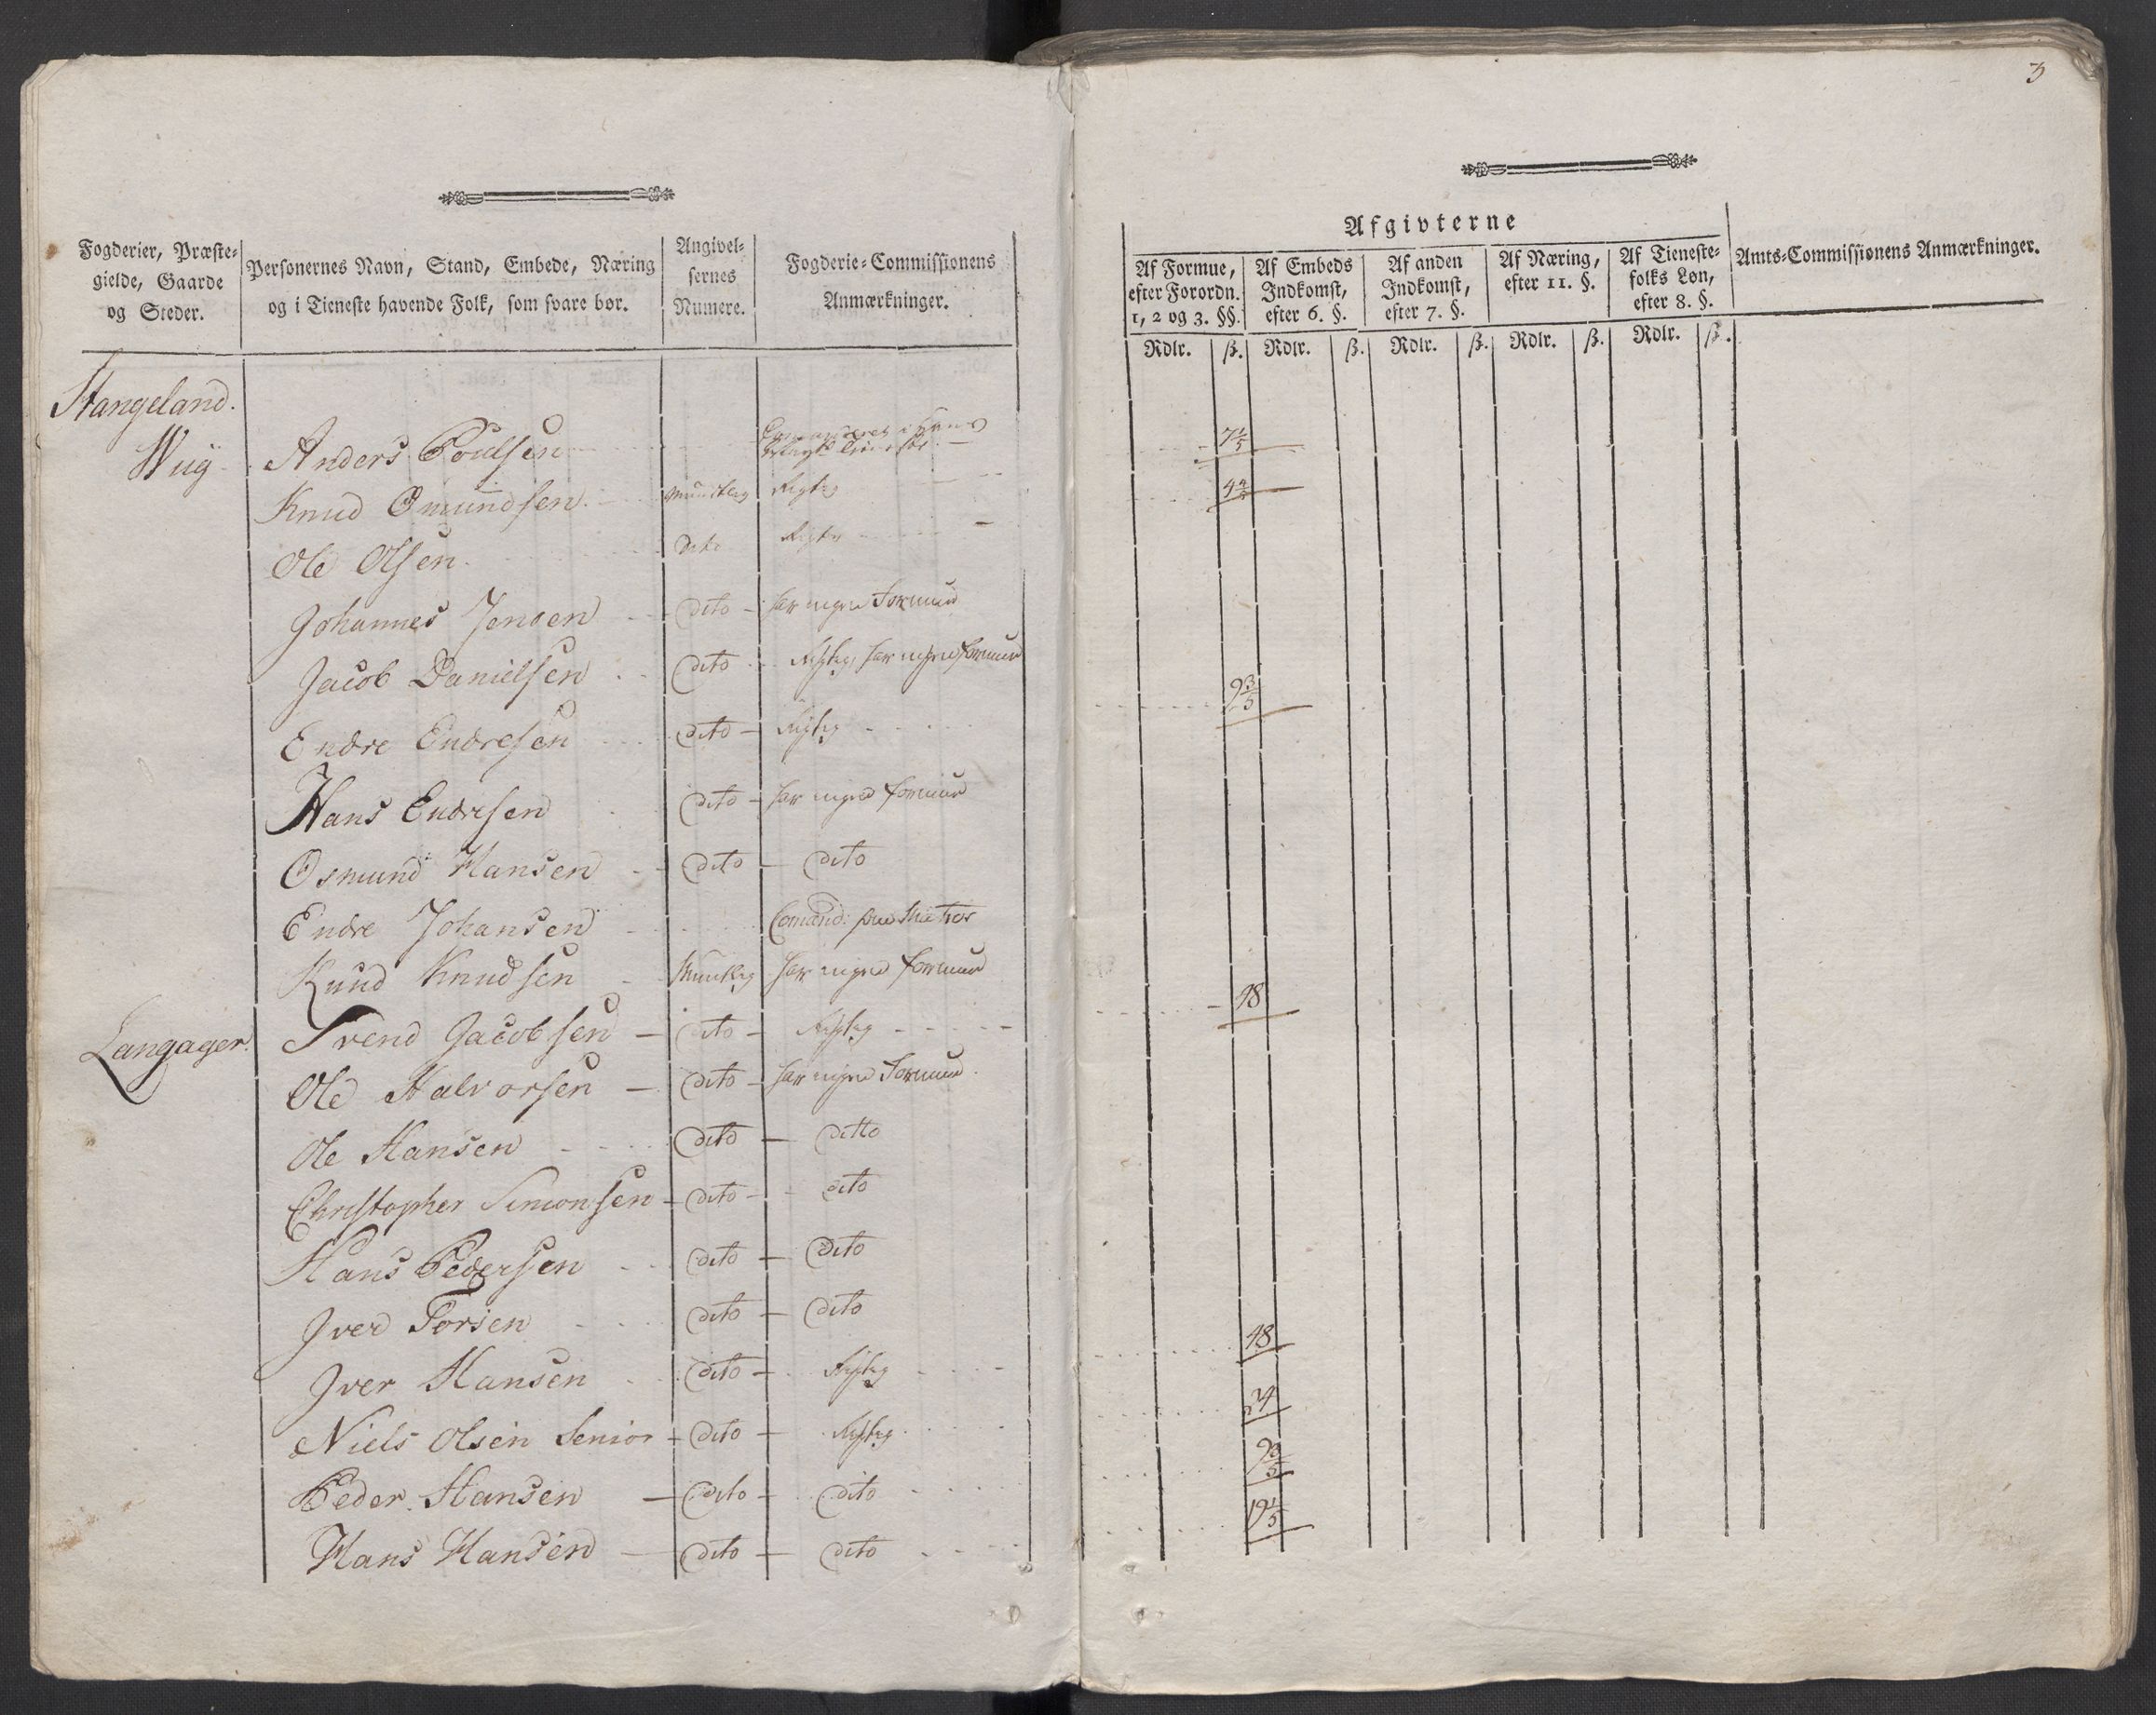 3
Fogderier, Præste-
gielde, Gaarde
og Steder.
Personernes Navn, Stand, Embede, Næring
og i Tieneste havende Folk, som svare bør.
Angivel-
sernes
Numere.
Fogderie-Commissionens
Anmærkninger.
Stangeland.
Wiig Anders Poulsen
Knud Omundsen Mundtlig Rigtig
Ole Olsen Dito Rigtig
Johannes Jensen dito har ingen Formue
Jacob Danielsen dito Rigtig, har ingen formue
Endre Endresen dito Rigtig
Hans Endresen dito har ingen formue
Osmund Hansen dito dito
Endre Johansen Comand:
Knud Knudsen Mundtlig har ingen formue
Langager. Svend Jacobsen dito Rigtig
Ole Halvorsen dito har ingen Formue
Ole Hansen dito ditto
Christopher Simonsen dito dito
Hans Pedersen dito Dito
Iver Torsen dito dito
Iver Hansen dito Rigtig
Niels Olsen Senior dito Rigtig
Peder Hansen dito dito
Hans Hansen dito dito
Afgivterne
Af Formue,
efter Forordn.
1, 2 og 3. §§.
Af Embeds
Indkomst,
efter 6. §.
Af anden
Indkomst,
efter 7. §.
Af Næring,
efter 11. §.
Af Tieneste-
folks Løn,
efter 8. §.
Amts-Commissionens Anmærkninger.
Rdlr. ß. Rdlr. ß. Rdlr. ß. Rdlr. ß. Rdlr. ß.
7 1/5
4 4/5
9 3/5
48
48
24
9 3/5
19 1/5